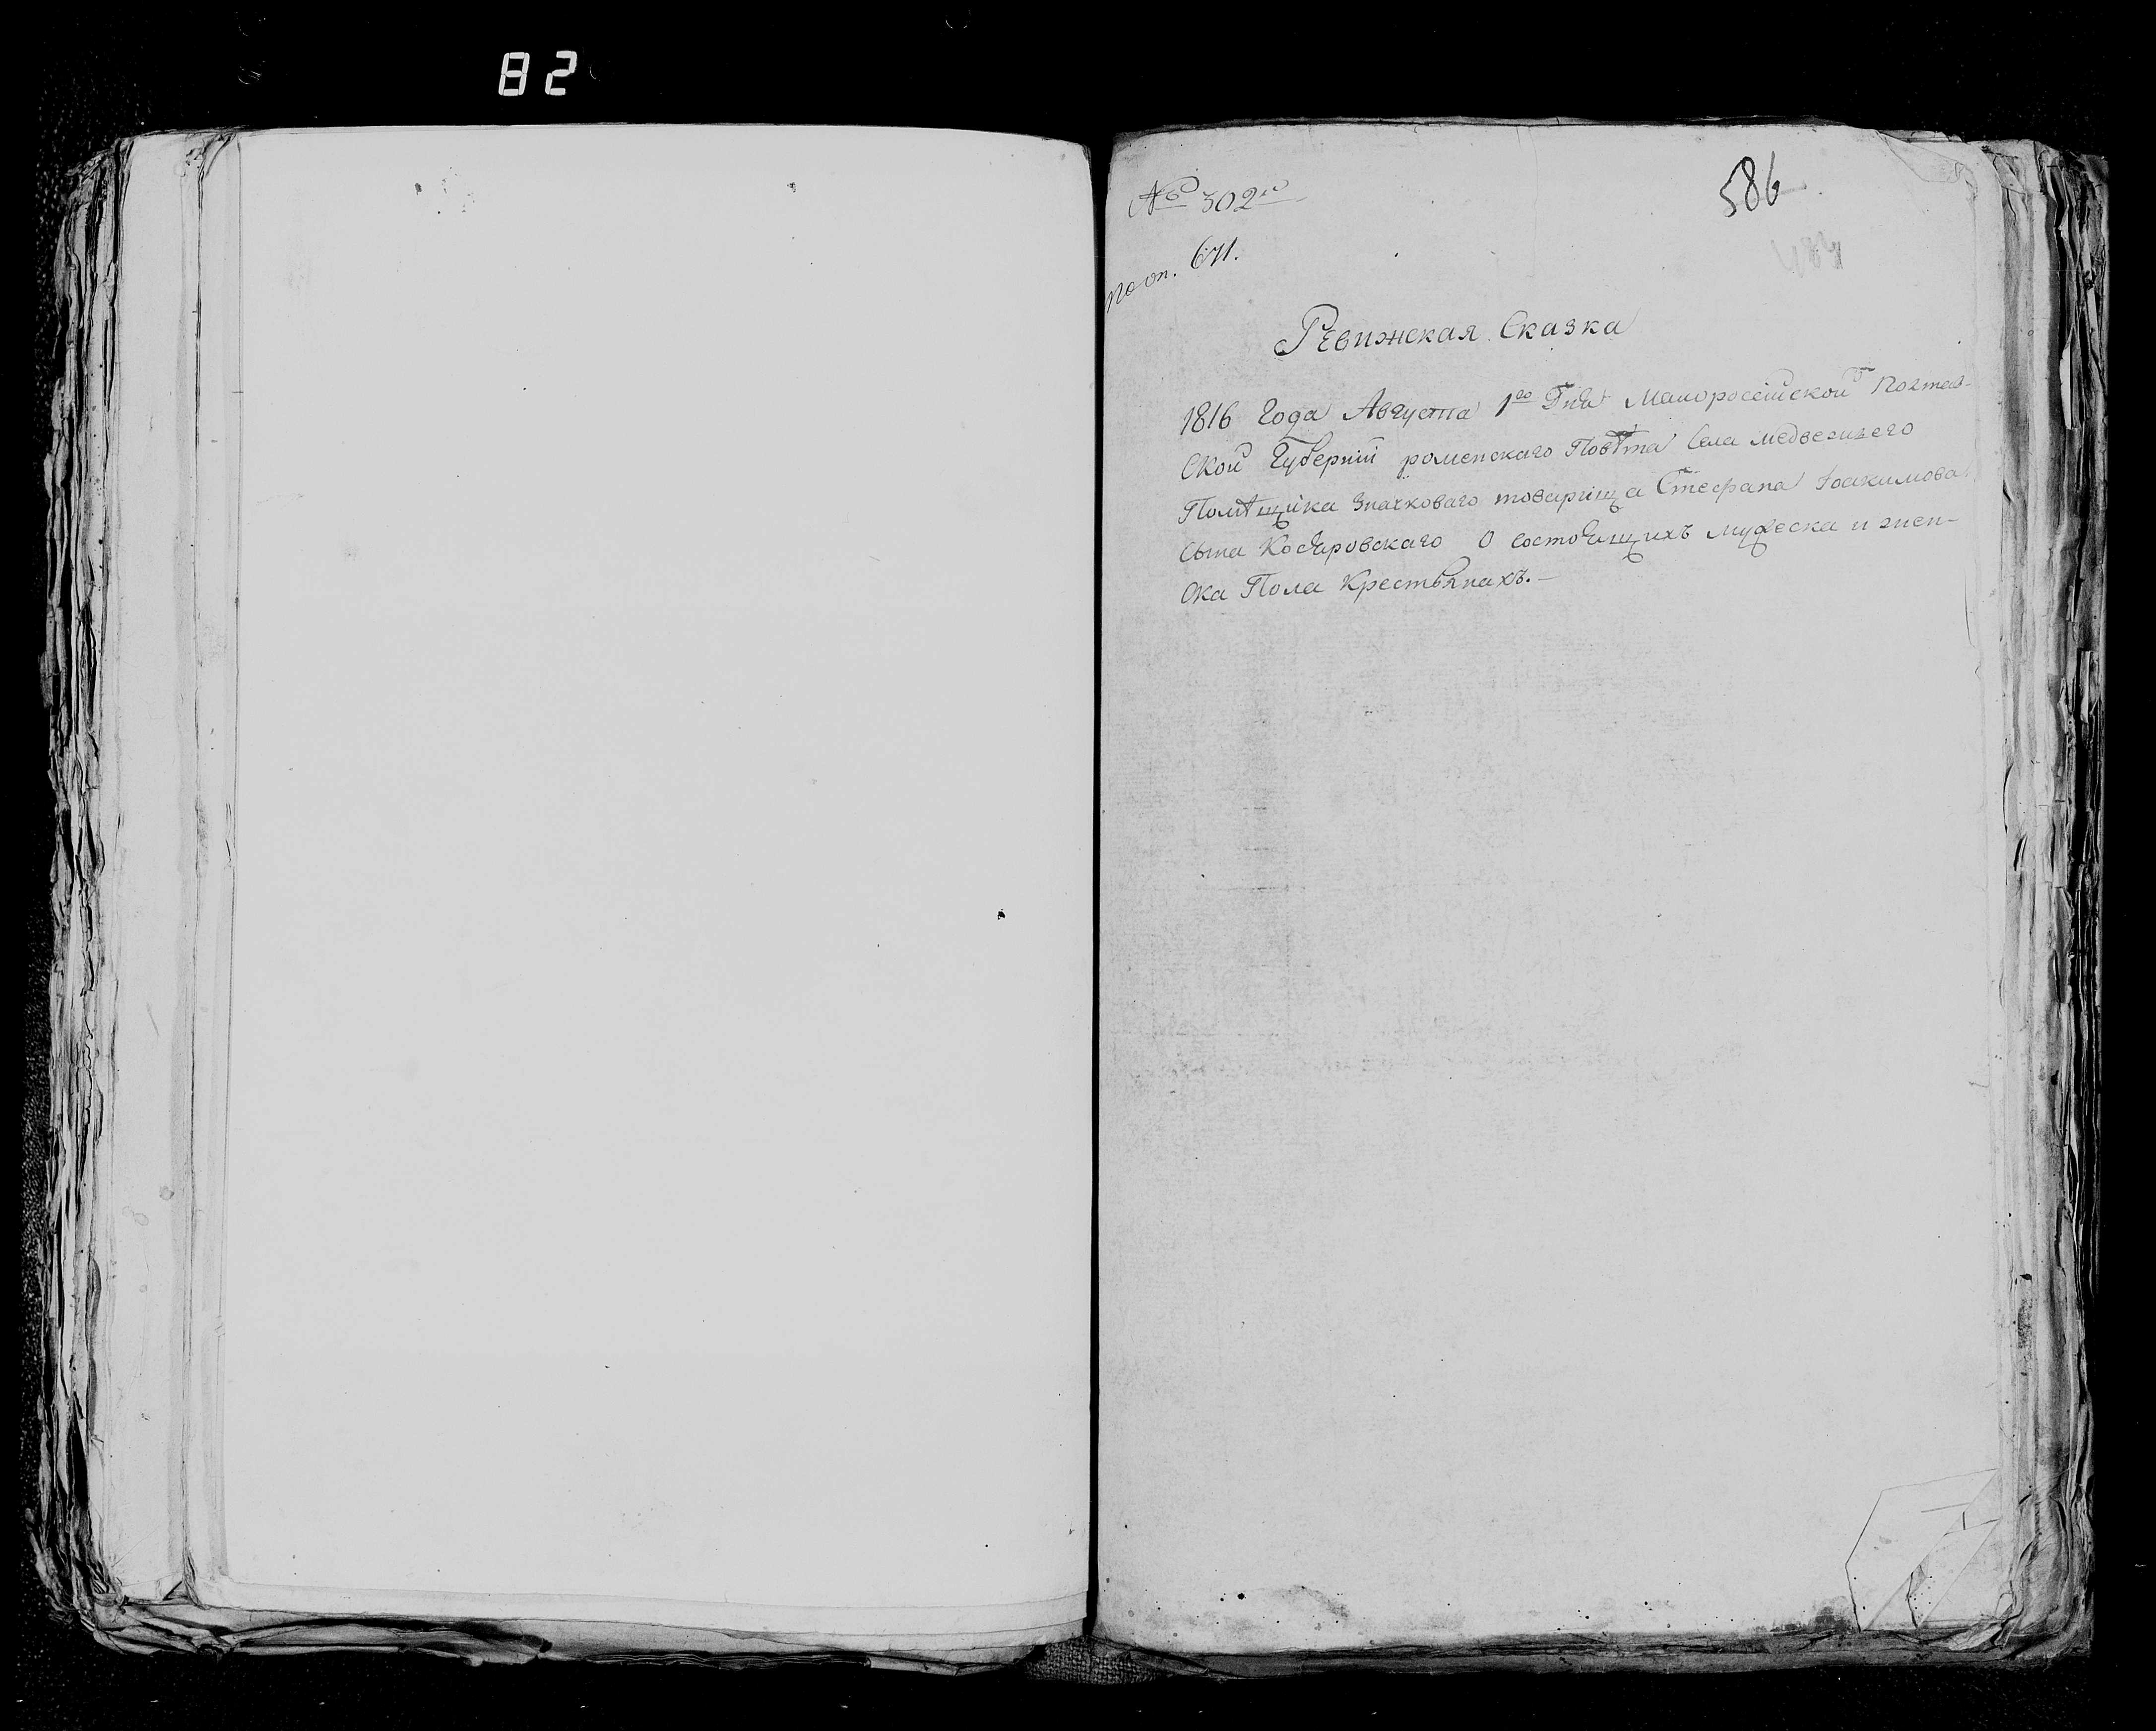 82
586
№ 302й
по оп. 671.
Ревижская Сказка
1816 Года Августа 1го Дня Малоросейской Полтав-
ской Губернии роменского Повѣта Села медвежего
Помѣщика Значковаго товарища Стефана Иоакимова
Сына Косяровскаго О состоящихъ мужеска и жен-
ска Пола Крестьянахъ.-